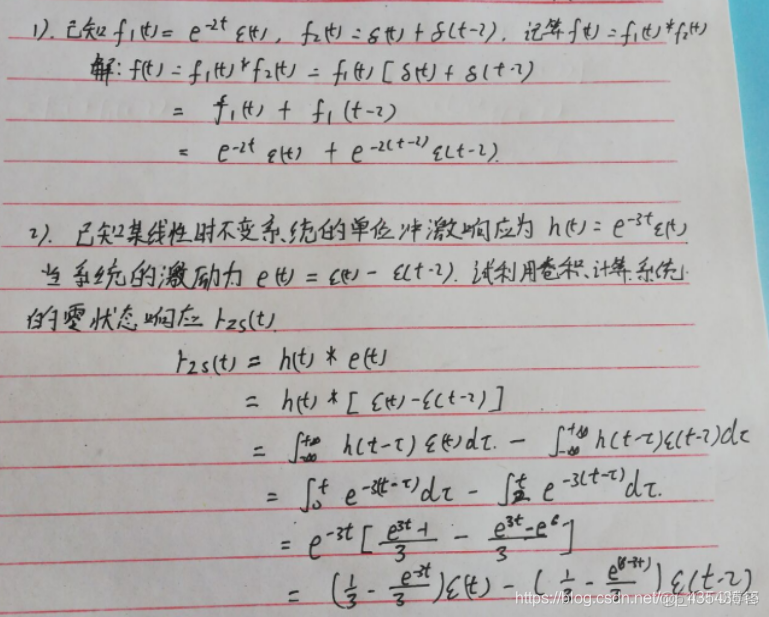 1). 已知 f₁(t) = e^{-2t} ε(t), f₂(t) = δ(t) + δ(t-2). 计算 f(t) = f₁(t) * f₂(t)
解: f(t) = f₁(t) * f₂(t) = f₁(t) [ δ(t) + δ(t-2)
= f₁(t) + f₁(t-2)
= e^{-2t} ε(t) + e^{-2(t-2)} ε(t-2).
2). 已知某线性时不变系统的单位冲激响应为 h(t) = e^{-3t} ε(t)
当系统的激励为 e(t) = ε(t) - ε(t-2). 试利用卷积计算系统
的零状态响应 rzs(t)
rzs(t) = h(t) * e(t)
= h(t) * [ ε(t) - ε(t-2) ]
= ∫_{-∞}^{+∞} h(t-τ) ε(t) dτ. - ∫_{-∞}^{+∞} h(t-τ) ε(t-2) dτ
= ∫_0^t e^{-3(t-τ)} dτ - ∫_2^t e^{-3(t-τ)} dτ.
= e^{-3t} [ (e^{3t}-1)/3 - (e^{3t}-e^6)/3 ]
= (1/3 - e^{-3t}/3) ε(t) - (1/3 - e^{(6-3t)}/3) ε(t-2)